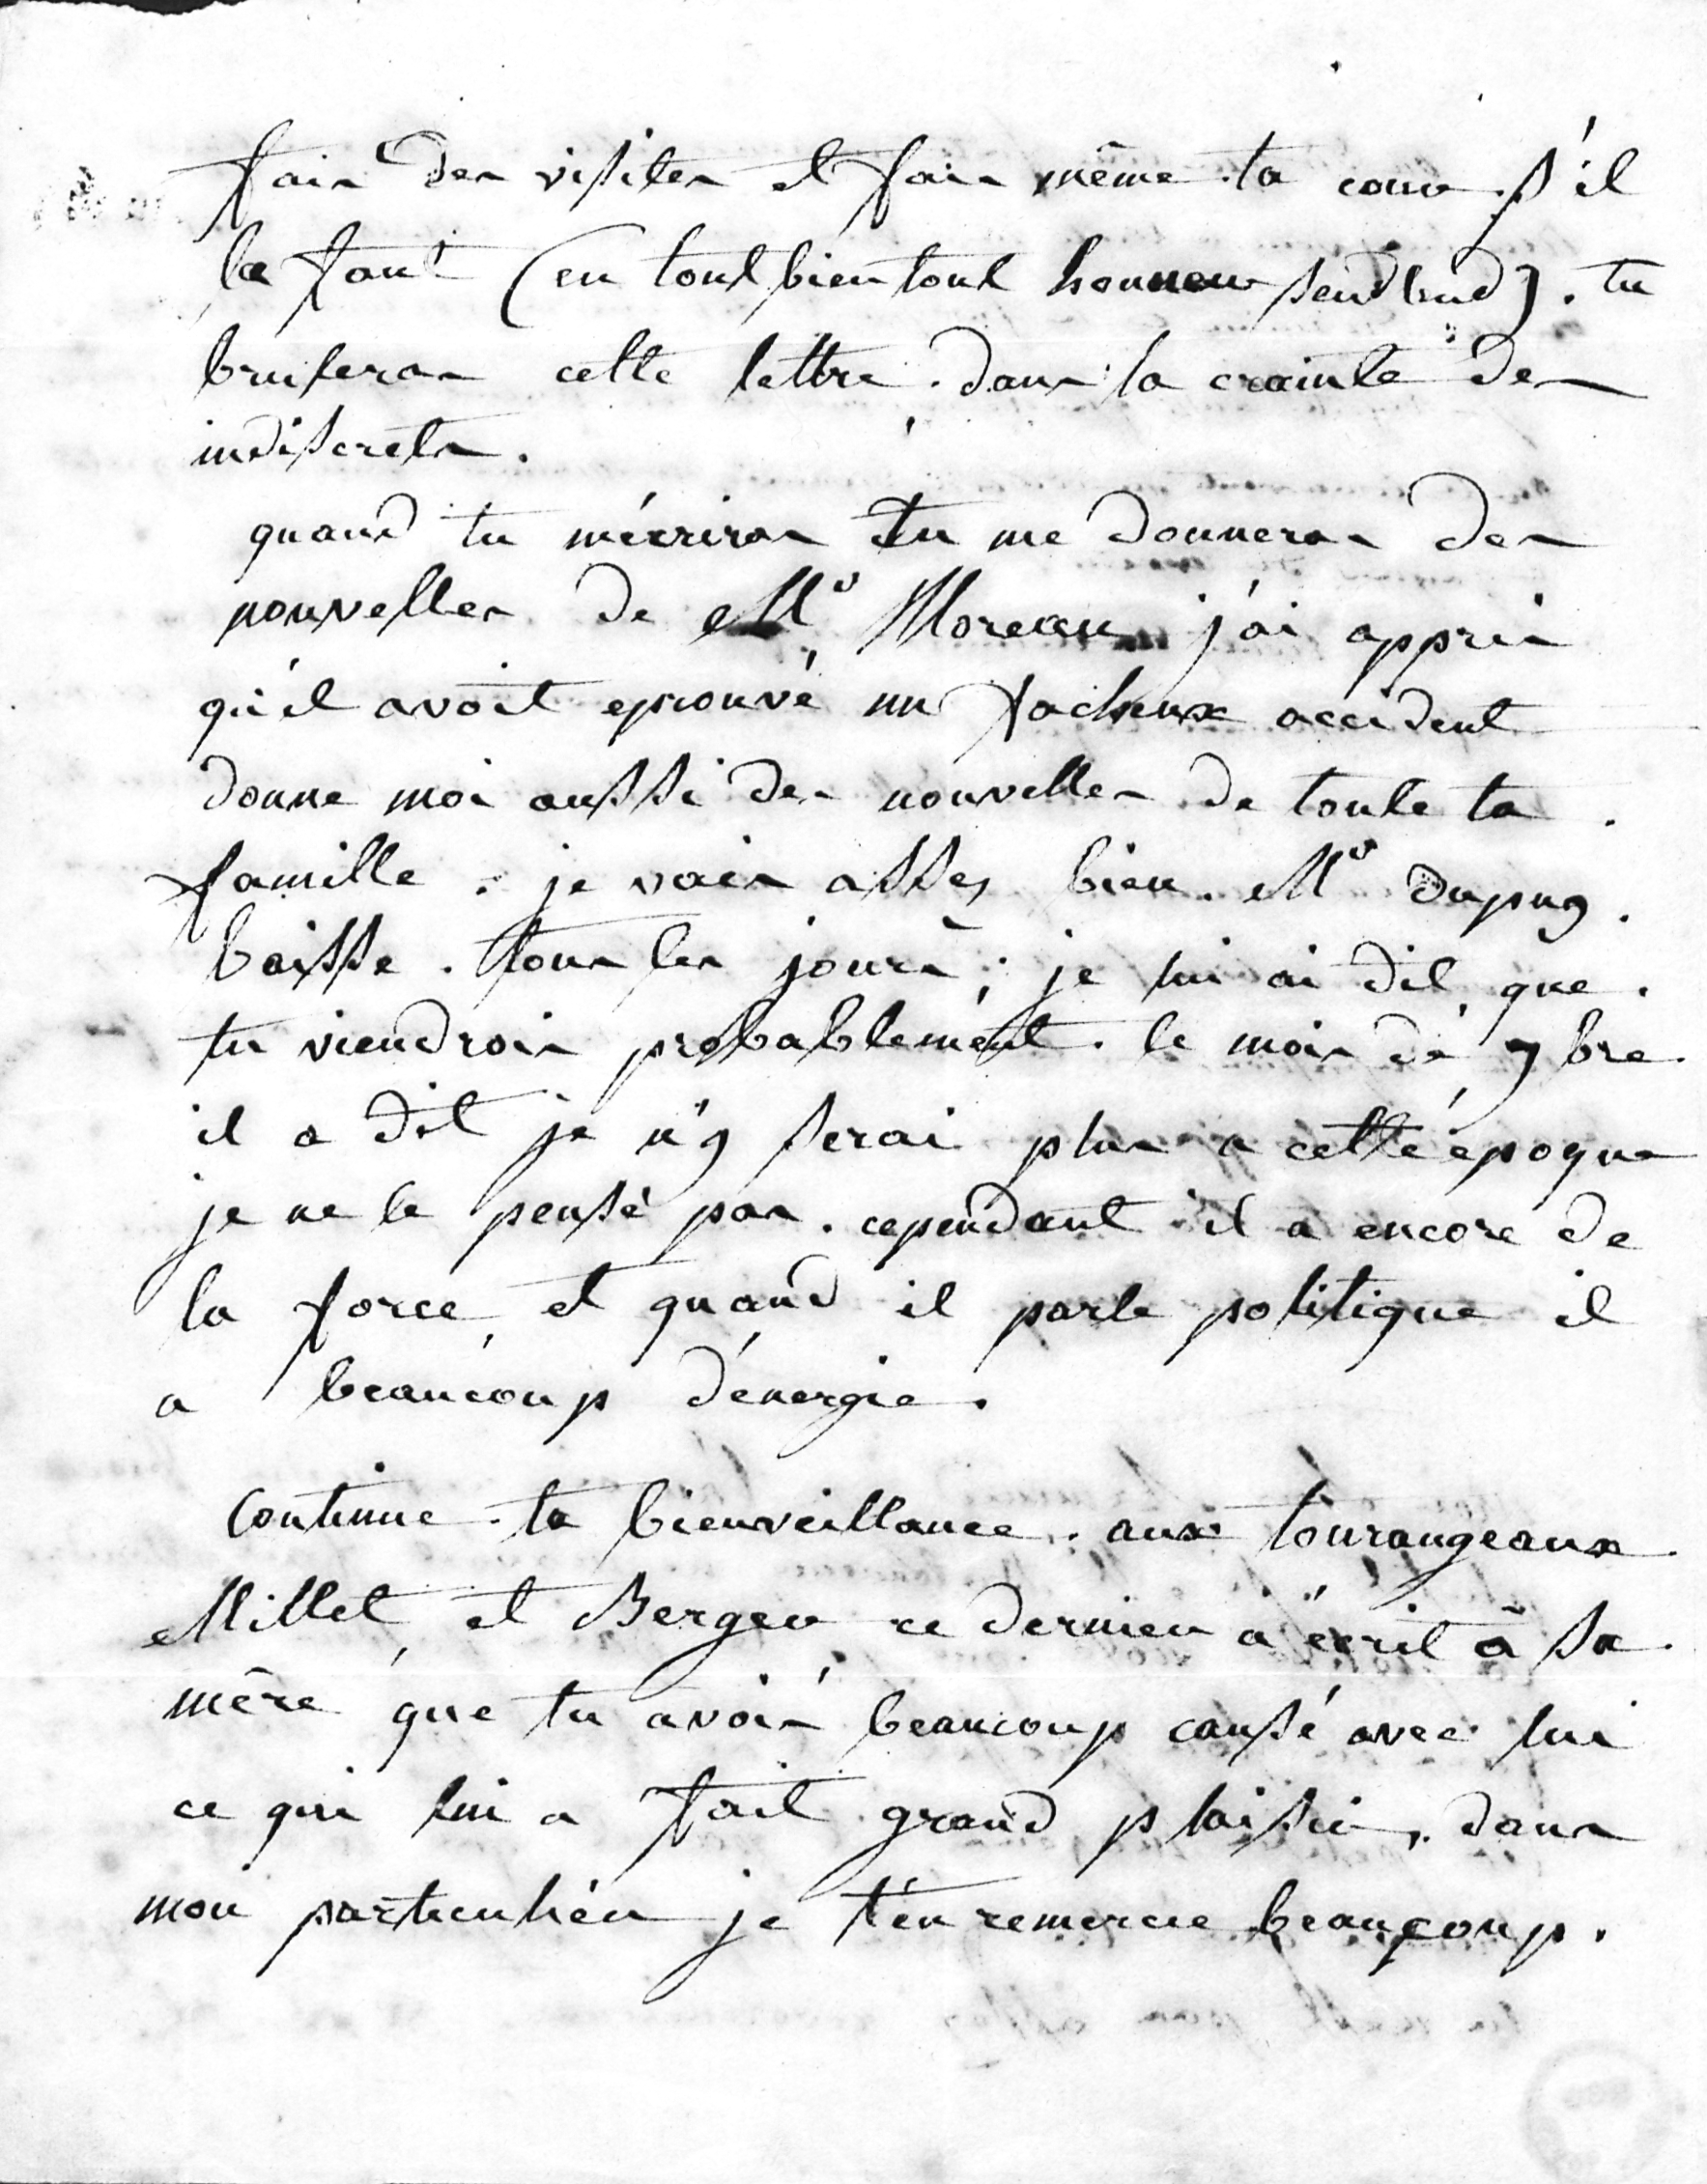 fais des visites et fais même ta cour s'il
le faut (en tout bien tout honneur sentend). tu
bruleras cette lettre. dans la crainte des
indiscrets.
quand tu mécriras tu me donneras des
nouvelles de Mr Moreau j'ai appris
qu'il avoit eprouvé un facheux accident
donne moi aussi des nouvelles de toute ta
famille. je vais assez bien. Mr dupuy.
baisse. tous les jours; je lui ai dit que.
tu viendrois probablement. le mois de 7bre
il a dit je n'y serai plus a cette époque
je ne le pense pas. cependant il a encore de
la force et quand il parle politique il
a beaucoup d'énergie.
Continue ta bienveillance. aux tourangeaux
Millet et Berger ce dernier a écrit à sa
mère que tu avois beaucoup causé avec lui
ce qui lui a fait grand plaisir, dans
mon particulier je t'en remercie beaucoup.